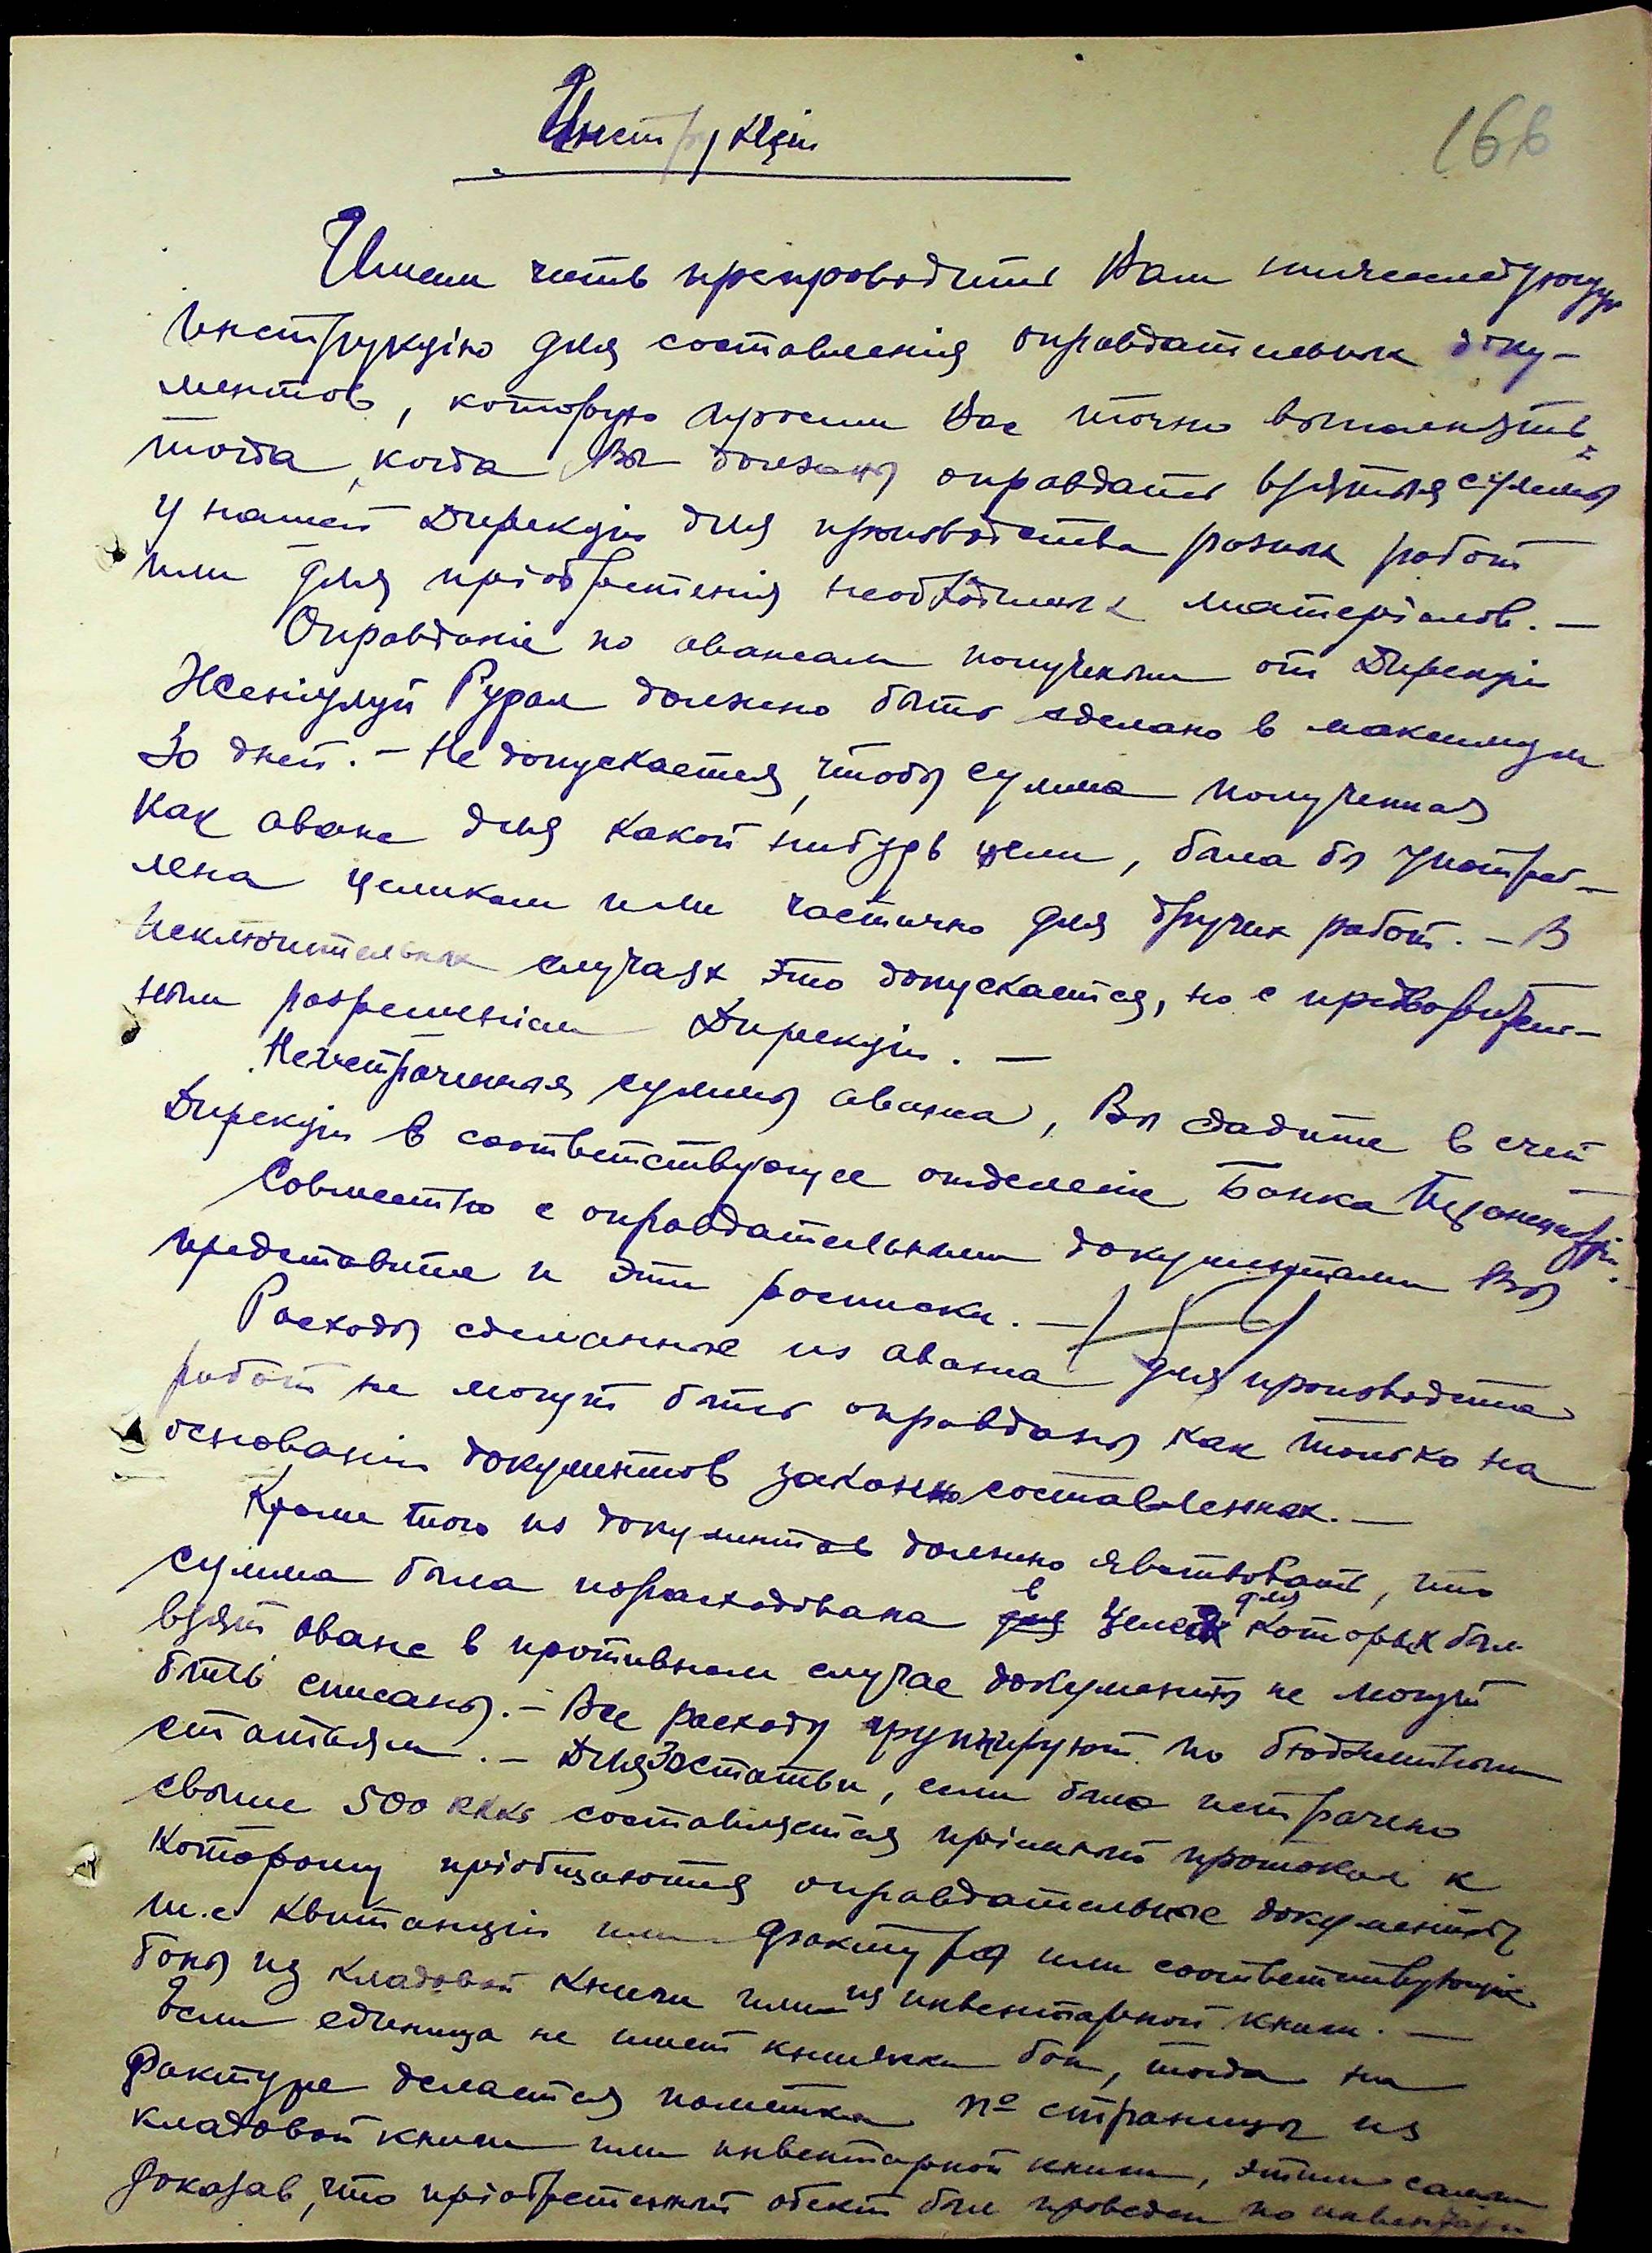 Инструкція
166
Имеем честь препроводить Вам нижеследующую
инструкцію для составленія оправдательных доку-
ментов, которую просим Вас точно выполнять,
тогда, когда Вы должны оправдать взятыя суммы
у нашей Дирекціи для производства разных работ
или для пріобретенія необходимых матеріалов. —
Оправданіе по авансам полученым от Дирекціи
Жениулуй Рурал должно быть сделано в максимум
30 дней. — Не допускается, чтобы сумма полученная
как аванс для какой нибудь цели, была бы употреб-
лена целиком или частично для других работ. — В
исключительных случаях это допускается, но с предварител-
ным разрешеніем Дирекціи. —
Неистраченныя суммы аванса, Вы сдадите в счет
Дирекціи в соответствующее отделеніе Банка
Совместно с оправдательными документами Вы
представите и эти росписки. —
Расходы сделанные из аванса для производства
работ не могут быть оправданы как только на
основаніи документов законно составленных. —
Кроме того из документов должно явствовать, что
сумма была израсходована в целях для которых был
взят аванс в противном случае документы не могут
быть списаны. — Все расходы групируют по бюджетным
статьям. — Для статьи, если было истрачено
свыше 500 составляется пріемный протокол к
которому пріобщаются оправдательные документы
т.е квитанціи или фактура или соответствующіе
боны из кладовой книги или из инвентарной книги. —
Если единица не имеет книжки бон, тогда на
фактуре делается пометка № страницы из
кладовой книги или инвентарной книги, этим самым
доказав, что пріобретенный обект был проведен по инвентарю